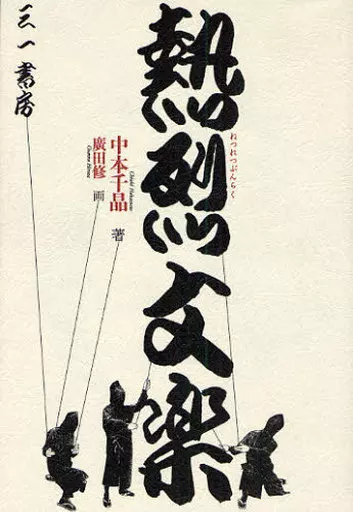 熱烈文楽
ねつれつぶんらく
中本千晶 著
Chiaki Nakamoto
廣田修 画
Osamu Hirota
三一書房